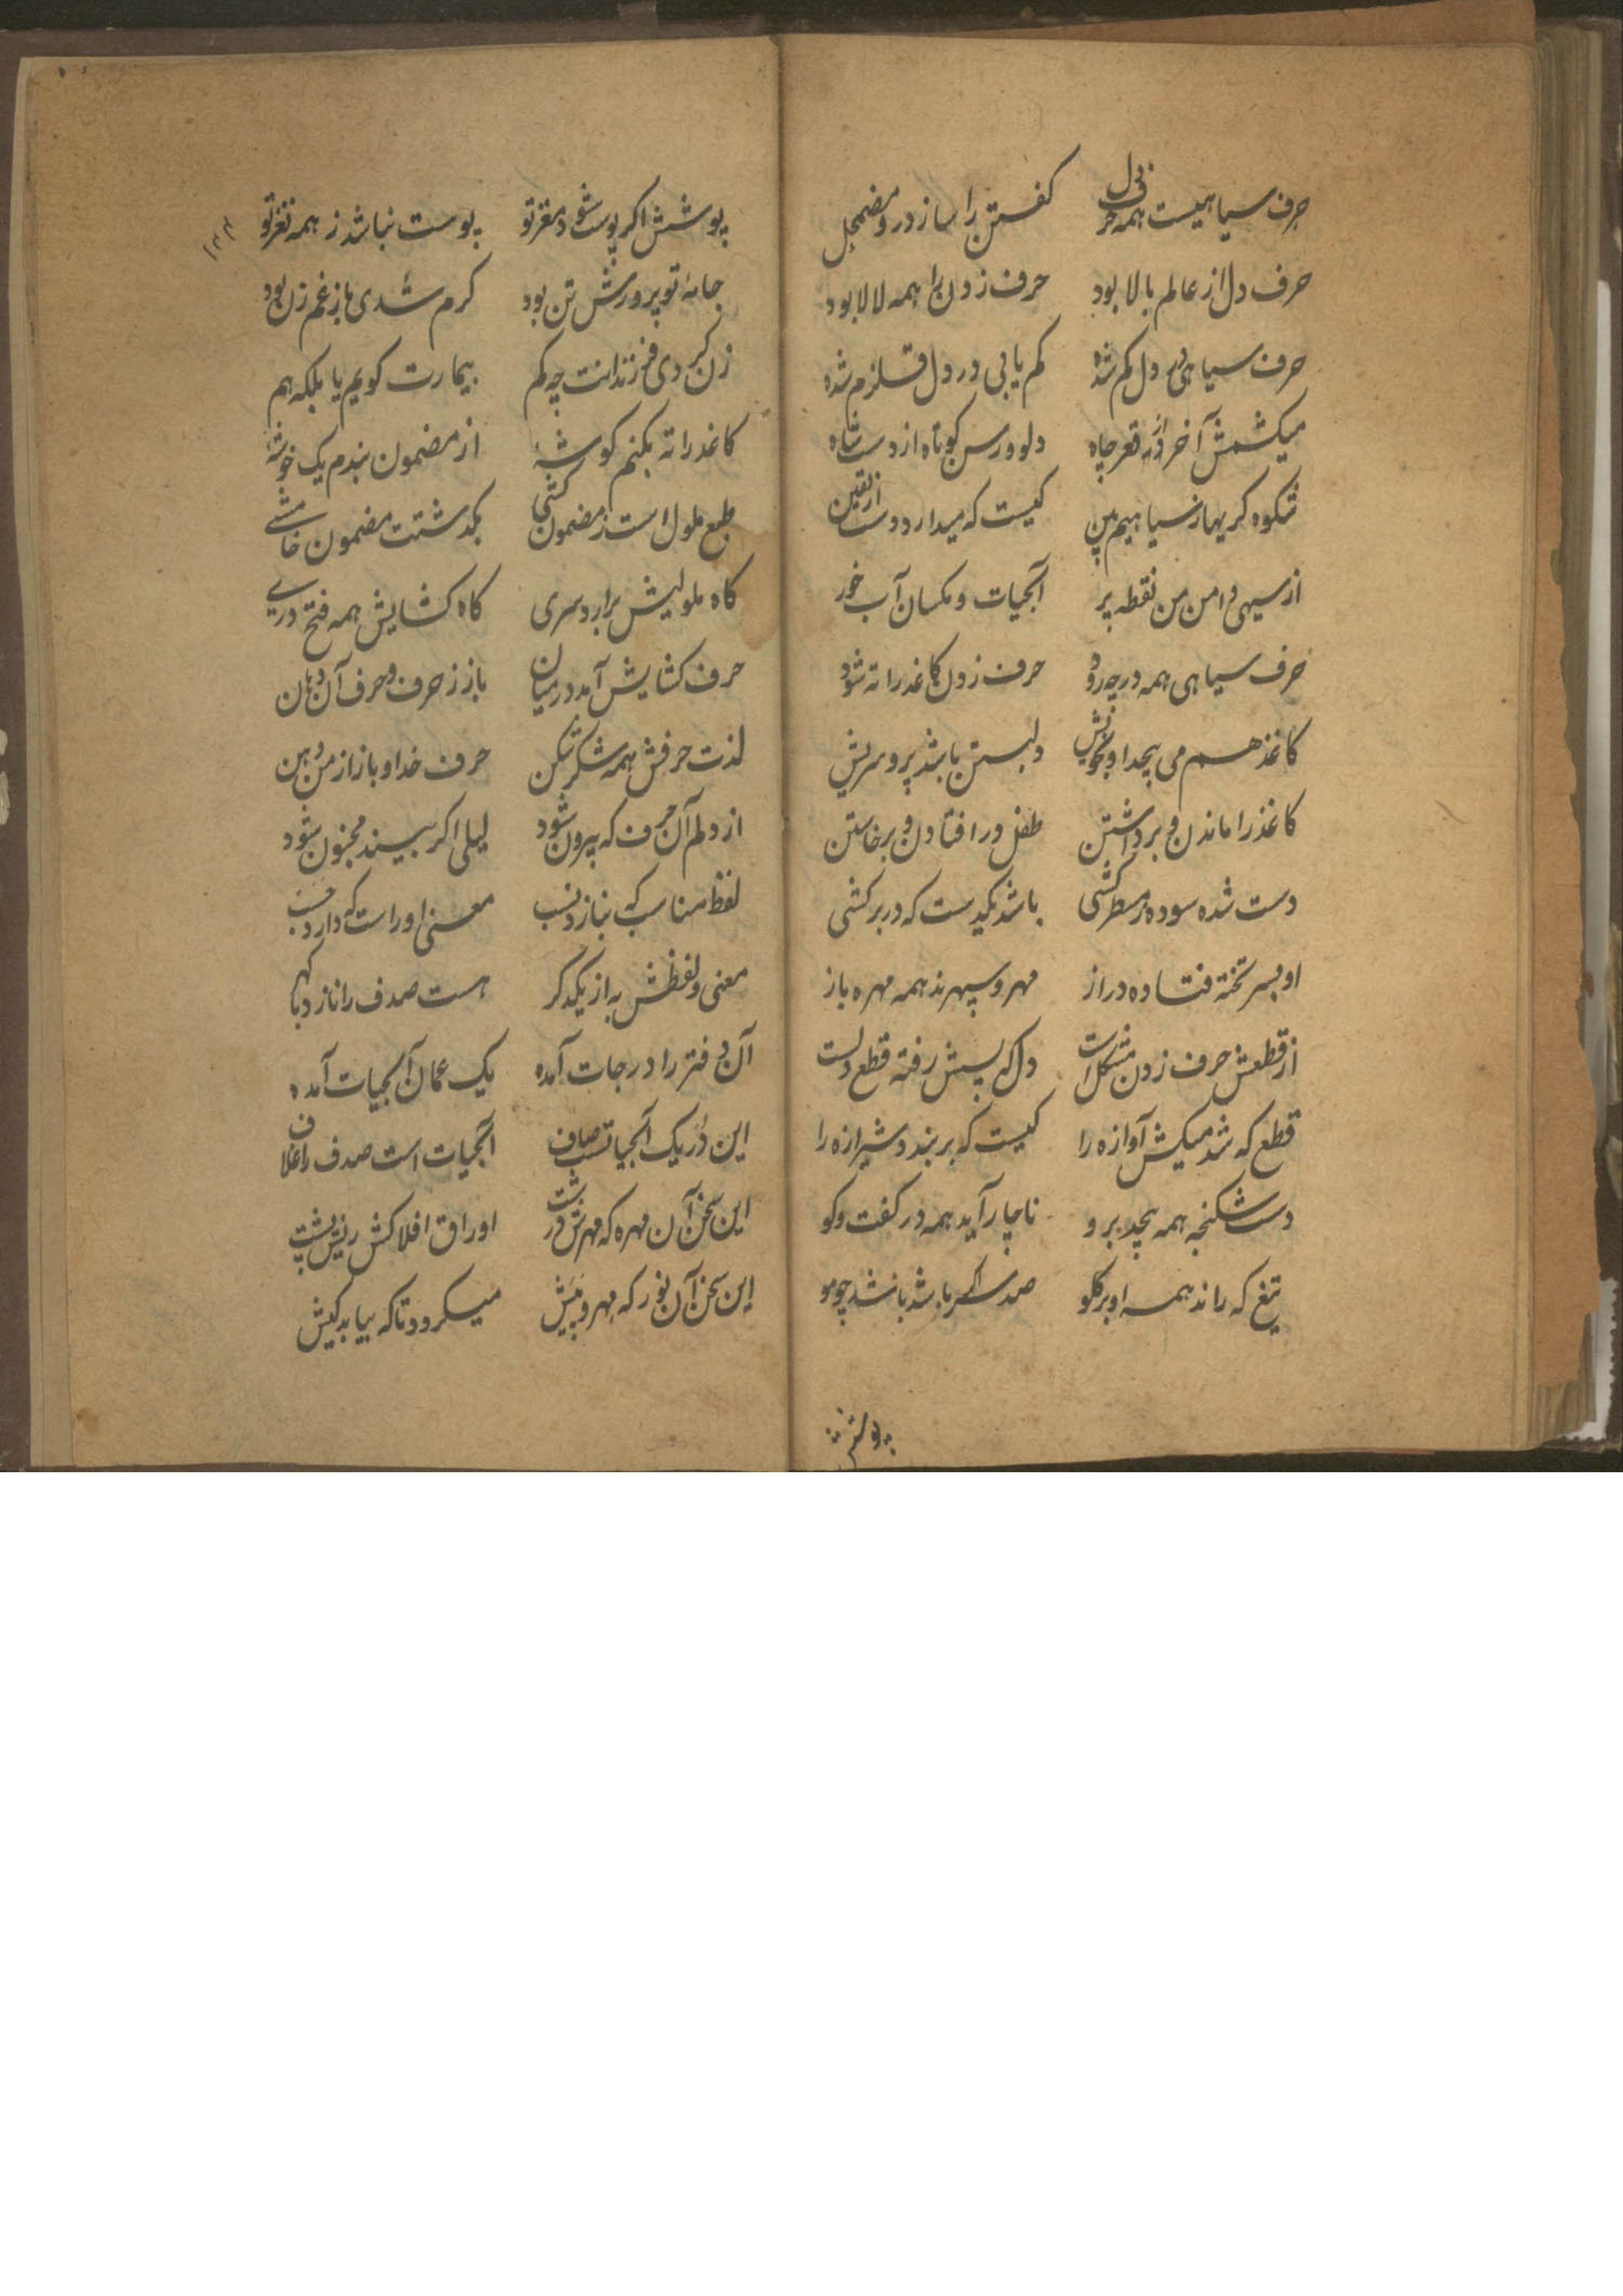 حرف سیاهیست همه حرف دل کفتن را ساز درو مضمحل
حرف دل از عالم بالا بود حرف زدن را همه لالا بود
حرف سیاهی دل کم شد کم یابی در دل قلزم شده
میکشمش آخر از قعر چاه دلو ورسن کوتاه از دست شاه
شکوه کر یهاز سیاهیم من کیست که میدارد دست از یقین
از سیهی دامن من نقطه پر آبحیات و مکسان آب خور
حرف سیاهی همه در چه رود حرف زدن کاغذ را ته شود
کاغذ هم می پیچد او بخویش دلبستن باشد پر و سریش
کاغذ را ماندن و برداشتن طفل در افتادن و برخاستن
دست شده سوده ز مسطر کشی باشد یکدست که در بر کشی
او بسر تخته فتاده دراز مهر و سپهرند همه مهره باز
از قطعش حرف زدن مشکل است دل که پسش رفته قطع دلست
قطع که شد میکش آوازه را کیست که بر بندد شیرازه را
دست شکنجه همه پیچد برو ناچار آید همه در کفت وکو
تیغ که راند همه او بر کلو صد سر اکر باشد باشد چو مو
پوشش
۱۳۳
پوشش اکر پوست شود مغز تو پوست نباشد ز همه نغز تو
جامهٔ تو پرورش تن بود کرم شدی باز غم زن بود
زن کردی فرزندانت چه کم بیمارت کویم یا بلکه هم
کاغذ را ته بکنم کوشه از مضمون بندم یک خوشه
طبع ملول است ز مضمون کشی بکذشتت مضمون خامشے
کاه ملولیش برارد سری کاه کشایش همه فتح درے
حرف کشایش آمد در میان باز ز حرف و حرف آن دهان
لذت حرفش همه شکر شکن حرف خدا و باز از من دهن
از دلم آن حرف که بیرون شود لیلی اکر بیند مجنون شود
لفظ مناسب که بنازد نسب معنی او راست که دارد حسب
معنی و لفظش به از یکدکر هست صدف را ناز د با کهر
آن دفتر را درجات آمده یک عمان آبحیات آمده
این در یک آبحیاتست صاف آبحیات است صدف را غلاف
این سخن آن مهره که مهرش در پشت اوراق افلاکش پشت
این سخن آن نور که مهر و پیش میکرود تا که بیابد کیش